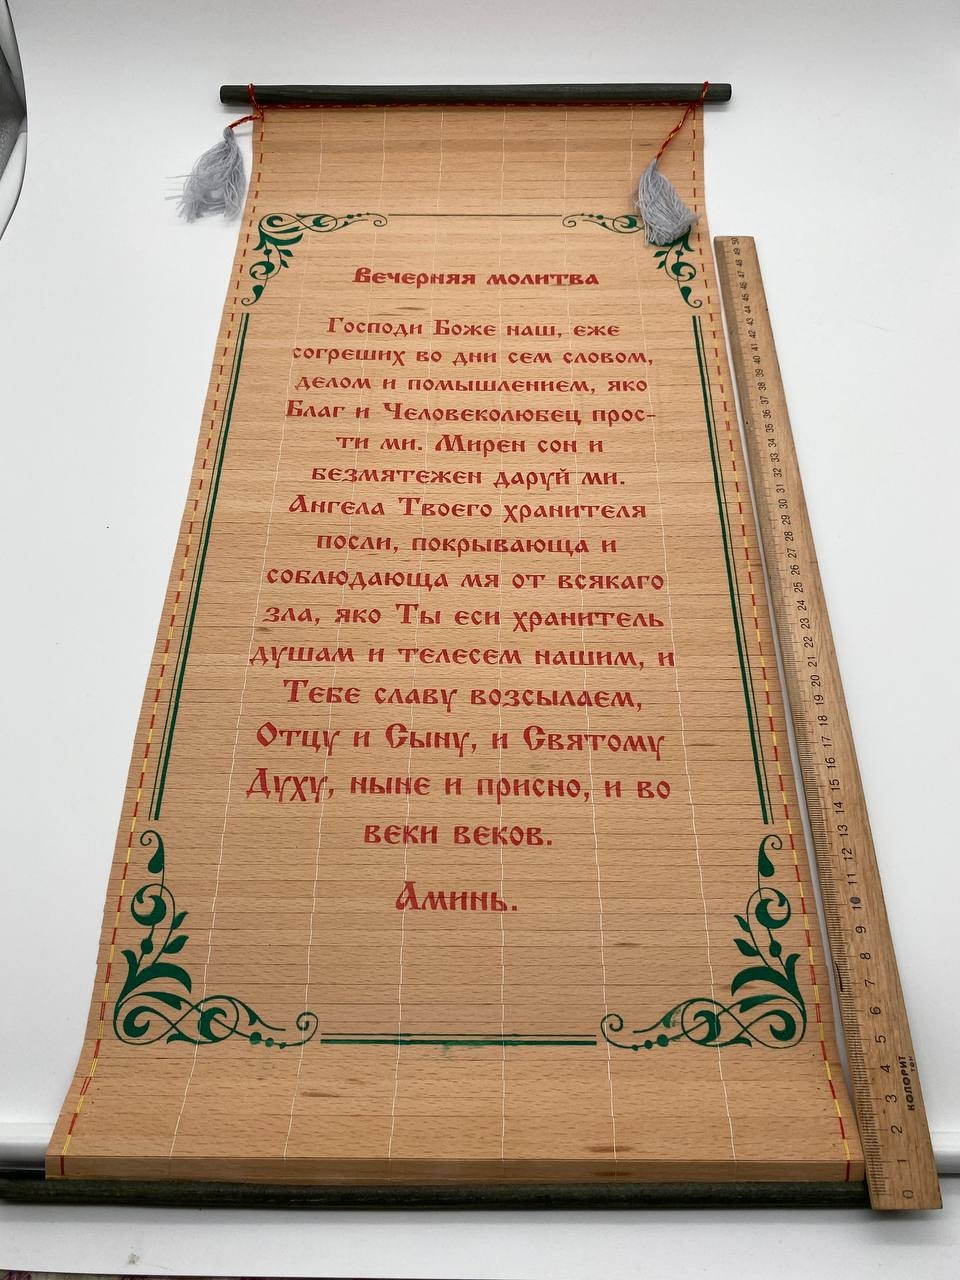 Вечерняя молитва
Господи Боже наш, еже
согреших во дни сем словом,
делом и помышлением, яко
Благ и Человеколюбец прос-
ти ми. Мирен сон и
безмятежен даруй ми.
Ангела Твоего хранителя
посли, покрывающа и
соблюдающа мя от всякаго
зла, яко Ты еси хранитель
душам и телесем нашим, и
Тебе славу возсылаем,
Отцу и Сыну, и Святому
Духу, ныне и присно, и во
веки веков.
Аминь.
0 1 2 3 4 5 6 7 8 9 10 11 12 13 14 15 16 17 18 19 20 21 22 23 24 25 26 27 28 29 30 31 32 33 34 35 36 37 38 39 40 41 42 43 44 45 46 47 48 49 50
КОЛОРИТ